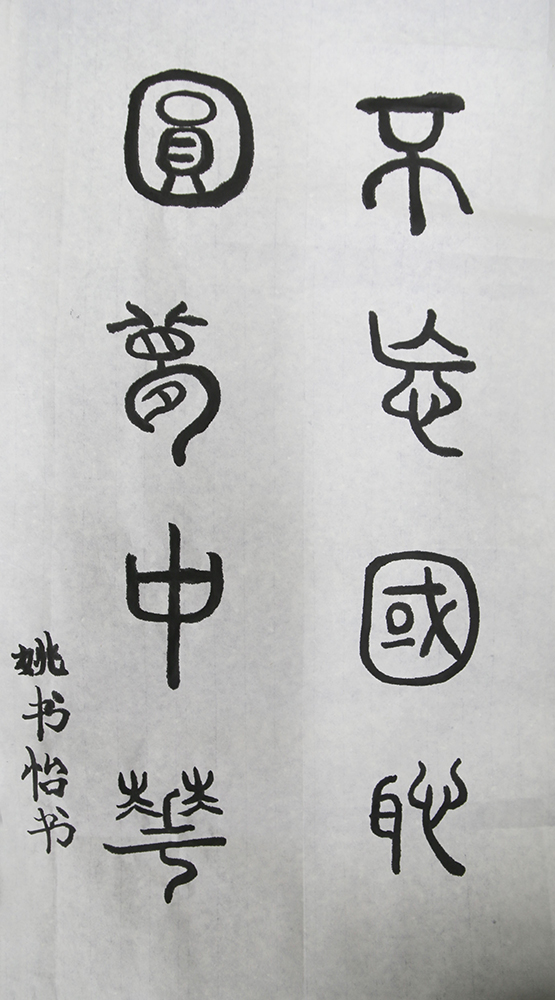 不忘國耻
圓夢中華
姚书怡书